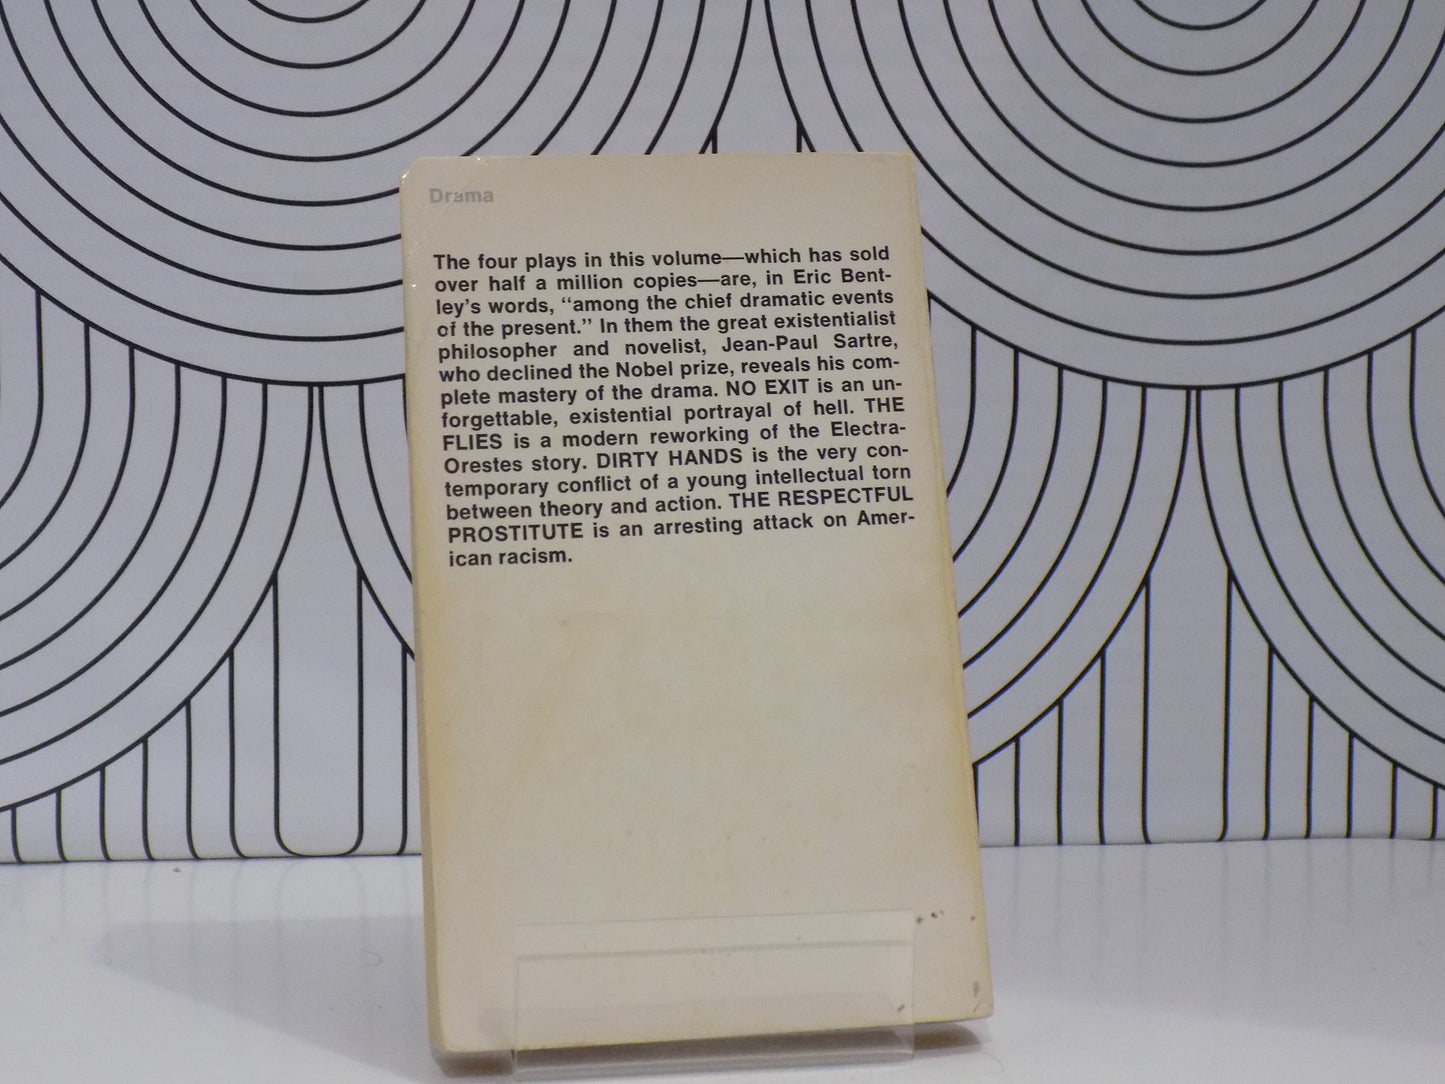 Drama
The four plays in this volume—which has sold
over half a million copies—are, in Eric Bent-
ley's words, “among the chief dramatic events
of the present.” In them the great existentialist
philosopher and novelist, Jean-Paul Sartre,
who declined the Nobel prize, reveals his com-
plete mastery of the drama. NO EXIT is an un-
forgettable, existential portrayal of hell. THE
FLIES is a modern reworking of the Electra-
Orestes story. DIRTY HANDS is the very con-
temporary conflict of a young intellectual torn
between theory and action. THE RESPECTFUL
PROSTITUTE is an arresting attack on Amer-
ican racism.